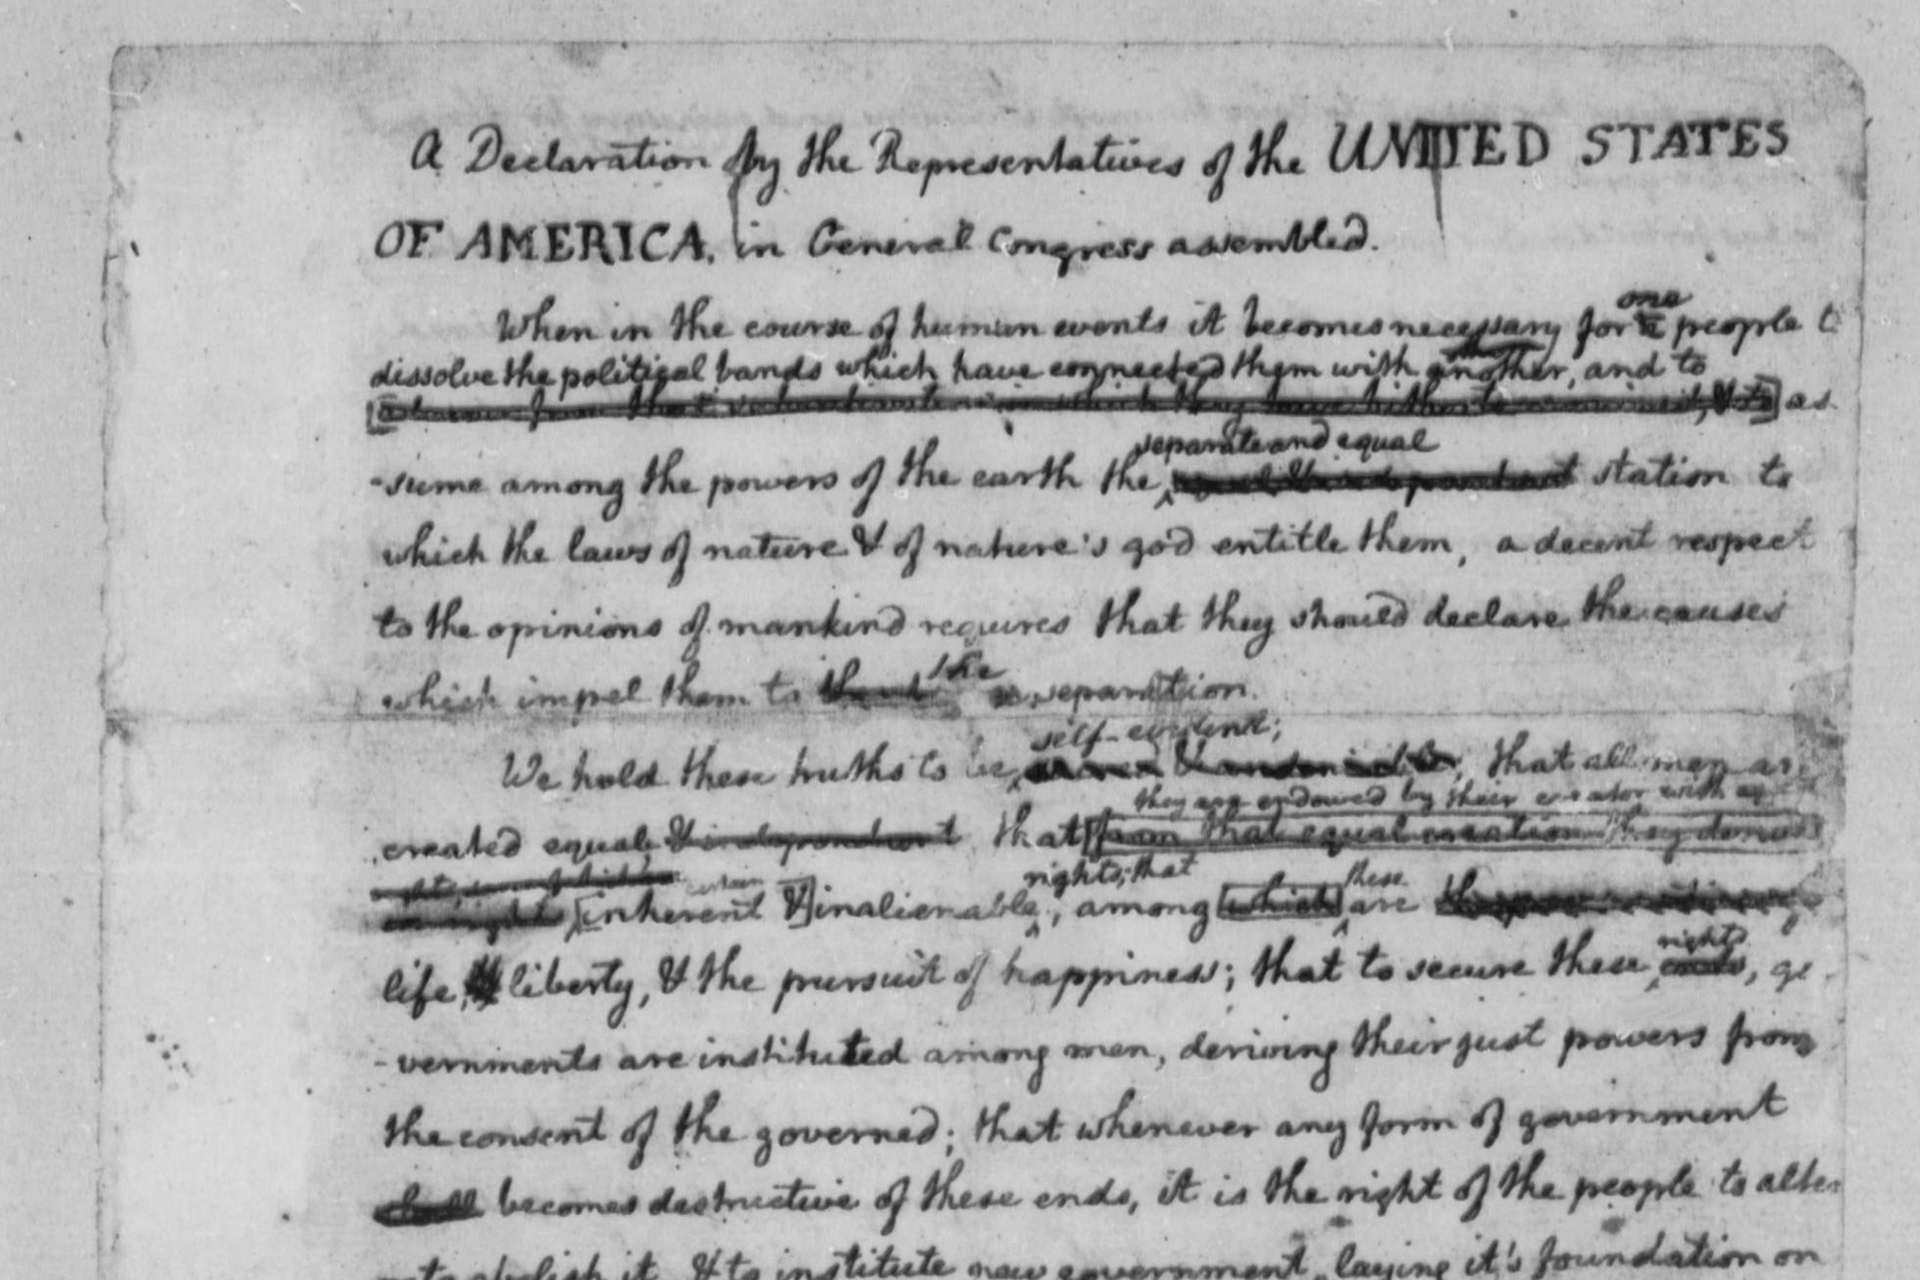 A Declaration by the Representatives of the UNITED STATES
OF AMERICA, in General Congress assembled.
one
When in the course of human events it becomes necessary for a people t
dissolve the political bands which have connected them with another, and to
as
separate and equal
-sume among the powers of the earth the station to
which the laws of nature & of nature's god entitle them, a decent respect
to the opinions of mankind requires that they should declare the causes
the
which impel them to separation.
self-evident;
We hold these truths to be , that all men ar
they are endowed by their creator with
created equal & independent that from that equal creation they
certain rights; that these
[inherent &] inalienable, among which are
rights
life, liberty, & the pursuit of happiness; that to secure these ends, go
-vernments are instituted among men, deriving their just powers from
the consent of the governed; that whenever any form of government
shall becomes destructive of these ends, it is the right of the people to alter
to abolish it, & to institute new government, laying it's foundation on